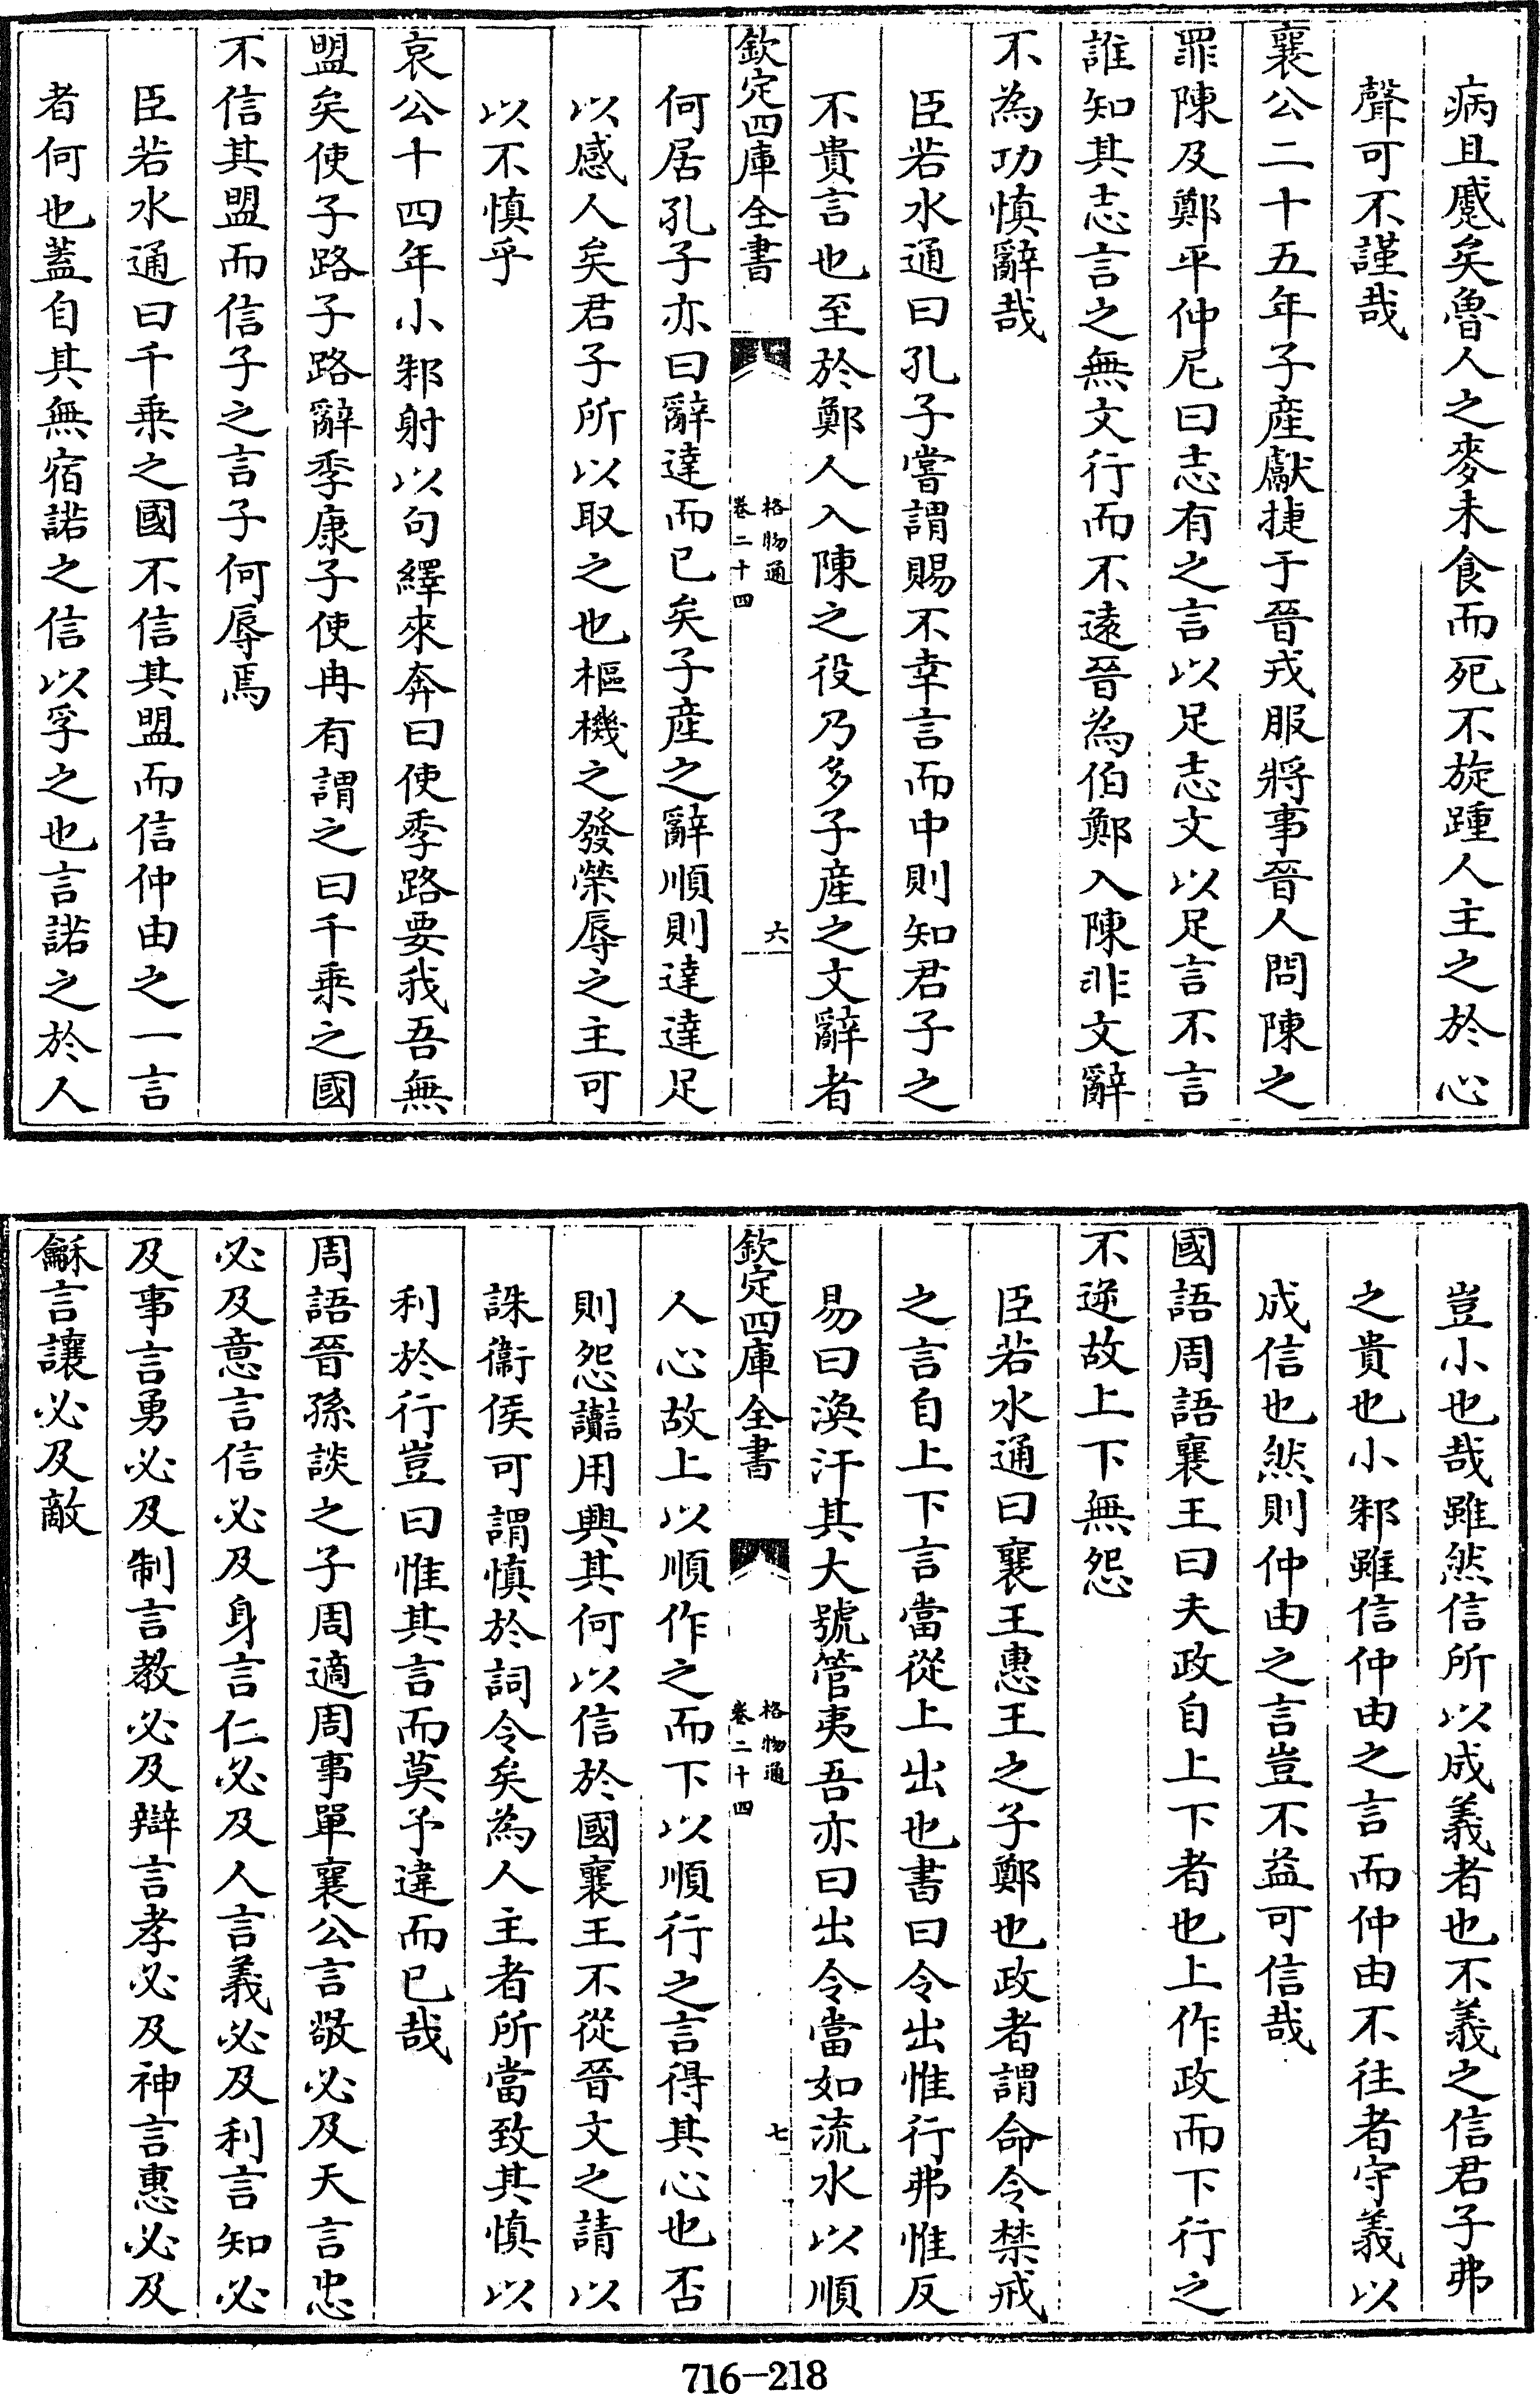 病且蹙矣魯人之麥未食而死不旋踵人主之於心
聲可不謹哉
襄公二十五年子產獻捷于晉戎服將事晉人問陳之
罪陳及鄭平仲尼曰志有之言以足志文以足言不言
誰知其志言之無文行而不遠晉為伯鄭入陳非文辭
不為功慎辭哉
臣若水通曰孔子嘗謂賜不幸言而中則知君子之
不貴言也至於鄭人入陳之役乃多子產之文辭者
欽定四庫全書
格物通
卷二十四
六
何居孔子亦曰辭達而已矣子產之辭順則達達足
以感人矣君子所以取之也樞機之發榮辱之主可
以不慎乎
哀公十四年小邾射以句繹來奔曰使季路要我吾無
盟矣使子路子路辭季康子使冉有謂之曰千乘之國
不信其盟而信子之言子何辱焉
臣若水通曰千乘之國不信其盟而信仲由之一言
者何也蓋自其無宿諾之信以孚之也言諾之於人
豈小也哉雖然信所以成義者也不義之信君子弗
之貴也小邾雖信仲由之言而仲由不往者守義以
成信也然則仲由之言豈不益可信哉
國語周語襄王曰夫政自上下者也上作政而下行之
不逆故上下無怨
臣若水通曰襄王惠王之子鄭也政者謂命令禁戒
之言自上下言當從上出也書曰令出惟行弗惟反
易曰渙汗其大號管夷吾亦曰出令當如流水以順
欽定四庫全書
格物通
卷二十四
七
人心故上以順作之而下以順行之言得其心也否
則怨讟用興其何以信於國襄王不從晉文之請以
誅衞侯可謂慎於詞令矣為人主者所當致其慎以
利於行豈曰惟其言而莫予違而已哉
周語晉孫談之子周適周事單襄公言敬必及天言忠
必及意言信必及身言仁必及人言義必及利言知必
及事言勇必及制言教必及辯言孝必及神言惠必及
龢言讓必及敵
716-218